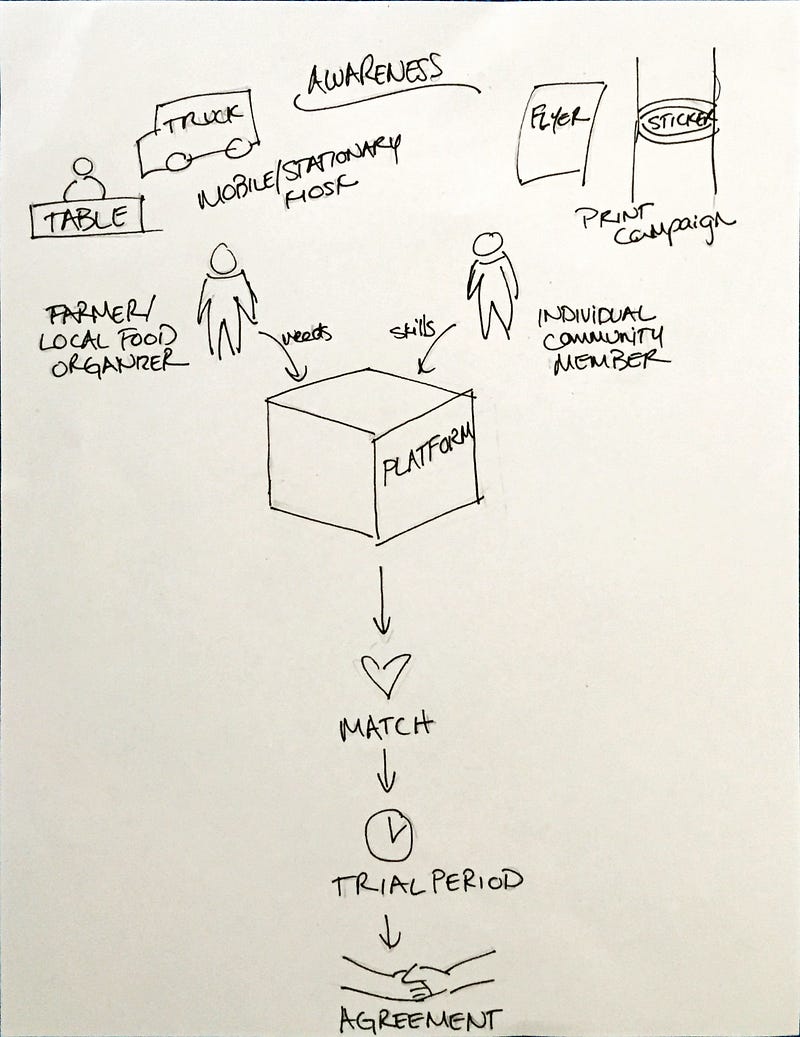 AWARENESS
TRUCK
FLYER
STICKER
MOBILE/STATIONARY
KIOSK
TABLE
PRINT
Campaign
FARMER/
LOCAL FOOD
ORGANIZER
needs
skills
INDIVIDUAL
COMMUNITY
MEMBER
PLATFORM
MATCH
TRIAL PERIOD
AGREEMENT